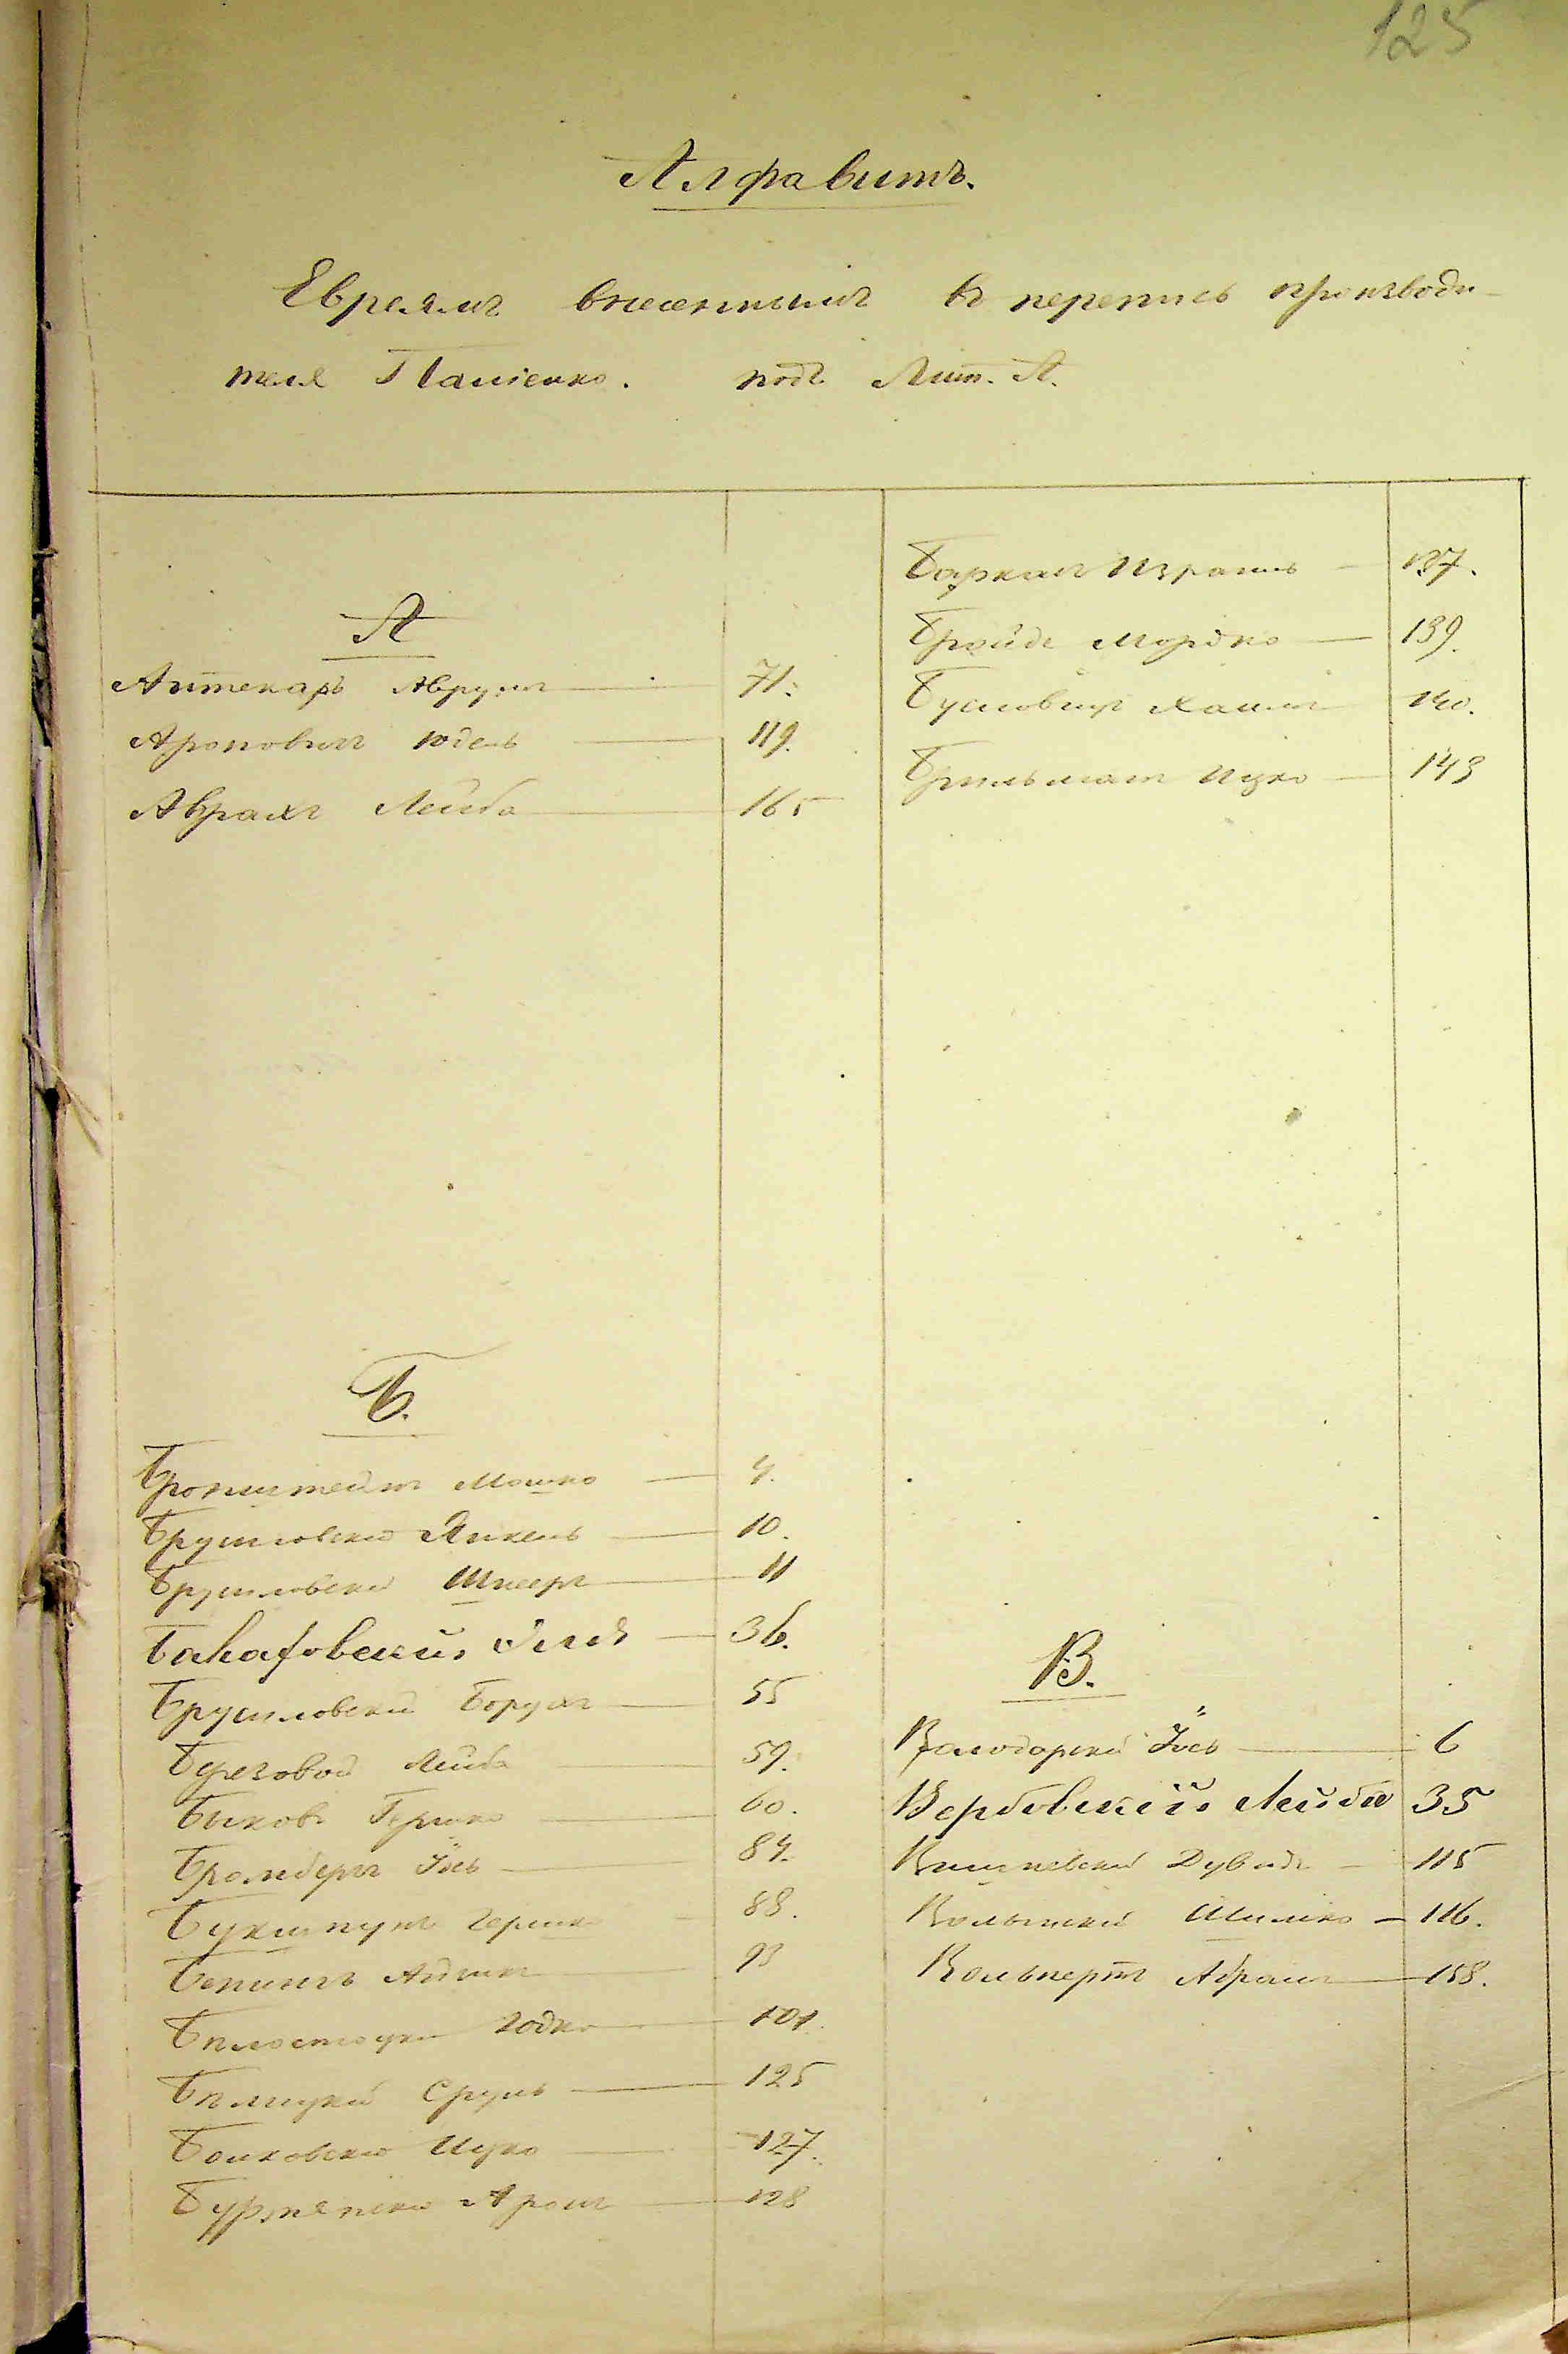 125
Алфавитъ.
Евреямъ внесеннымъ въ перепись производи-
теля Пашенко. подъ Лит. А.
А
Аптекарь Аврумъ 71.
Ароновичъ Юдель 119.
Аврахъ Лейба 165
Б.
Бронштейнъ Мошко 4.
Брусиловскій Янкель 10.
Брусиловскій Шнееръ 11
36.
Брусиловскій Борухъ 55
Березовой Лейба 59.
Быховъ Гершко 60.
Бромбергъ Іось 84.
Гершко 88.
93
Бѣлостоцкій Іодко 101.
Бѣлицкій Сруль 125
Ицко 127.
Аронъ 128
Барканъ Израиль 137.
Бройде Мордко 139.
Бусловичъ Хаимъ 140.
Брильманъ Ицко 143
В.
Володарскій Іось 6
Вербовскій Лейба 35
Вишневскій Дувидъ 115
Волынскій Шимко 116.
Вольпертъ Абрамъ 158.